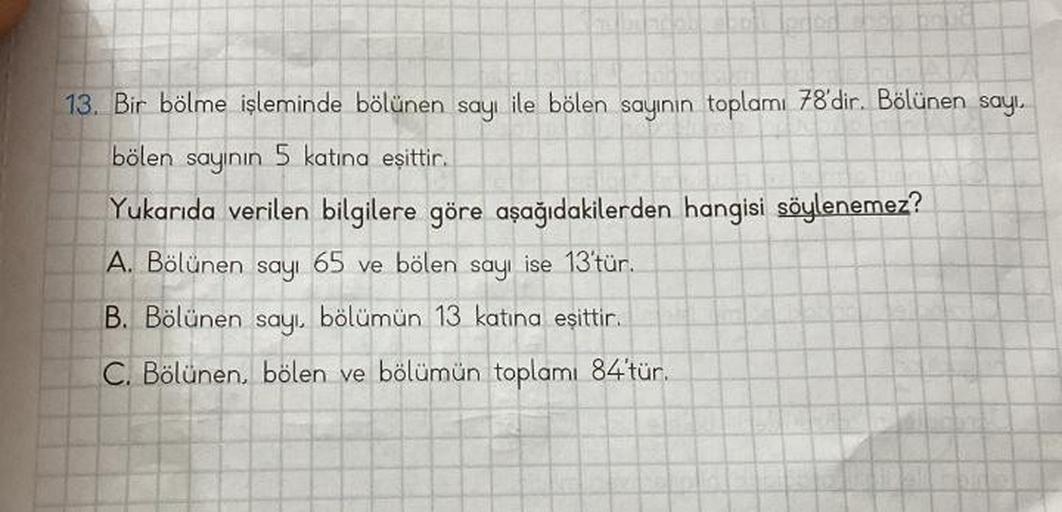 13. Bir bölme işleminde bölünen sayı ile bölen sayının toplamı 78'dir. Bölünen sayı,
bölen sayının 5 katına eşittir.
Yukarıda verilen bilgilere göre aşağıdakilerden hangisi söylenemez?
A. Bölünen sayı 65 ve bölen sayı ise 13'tür.
B. Bölünen sayı, bölümün 13 katına eşittir.
C. Bölünen, bölen ve bölümün toplamı 84'tür.